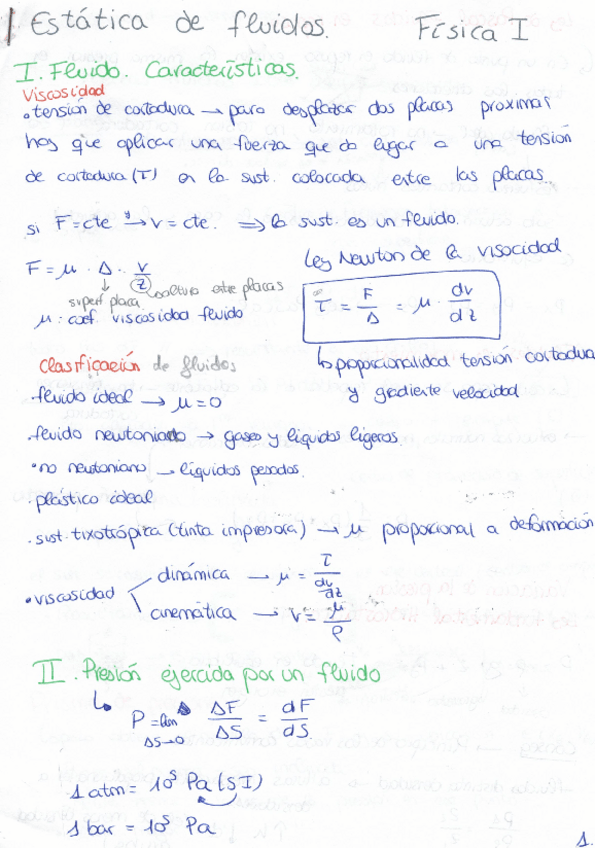 Estática de fluidos. Física I
I. Fluido. Características.
Viscosidad
• tensión de cortadura → para desplazar dos placas próximas
hay que aplicar una fuerza que da lugar a una tensión
de cortadura (τ) en la sust. colocada entre las placas.
si F = cte y → v = cte. ⇒ la sust. es un fluido.
Ley Newton de la visocidad
F = μ · Δ · v/z
superf placa
altura entre placas
τ = F/Δ = μ · dv/dz
μ: coef. viscosidad fluido
↳ proporcionalidad tensión cortadura
y gradiente velocidad
Clasificación de fluidos
· fluido ideal → μ = 0
· fluido newtoniano → gases y líquidos ligeros.
· no newtoniano → líquidos pesados.
· plástico ideal
· sust. tixotrópica (tinta impresora) → μ proporcional a deformación
• viscosidad
dinámica → μ = τ / dv/dz
cinemática → ν = μ/ρ
II. Presión ejercida por un fluido
↳ P = lim ΔS→0 ΔF/ΔS = dF/dS
1 atm = 10⁵ Pa (SI)
1 bar = 10⁵ Pa
1.